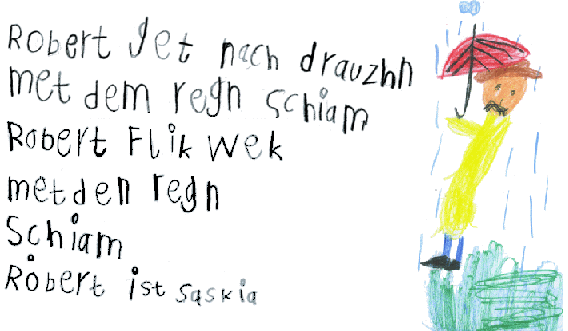 Robert get nach drauzhn
met dem regn Schiam
Robert Flik wek
metden regn
Schiam
Robert ist Saskia